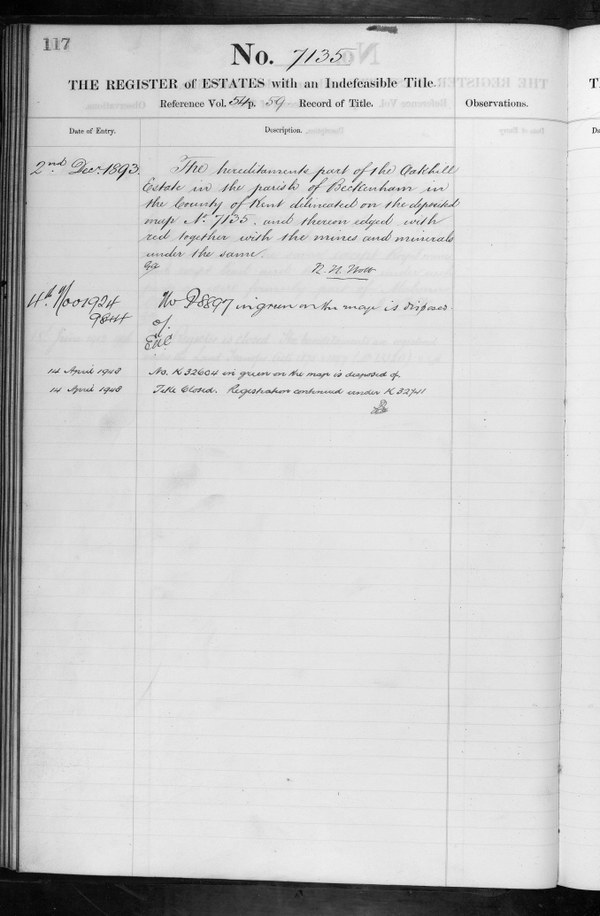 117
No. 7135
THE REGISTER of ESTATES with an Indefeasible Title.
Reference Vol. 54 p. 59 Record of Title.
Observations.
Date of Entry.
Description.
2nd Decr 1893.
The hereditaments part of the Oakhill
Estate in the parish of Beckenham in
the County of Kent delineated on the deposited
map No. 7135. and thereon edged with
red together with the mines and minerals
under the same.
4th Nov 1924
No P8897 in green on the map is disposed
of.
14 April 1948 No. K 32604 in green on the map is disposed of.
14 April 1948 Title Closed. Registration continued under K 32741